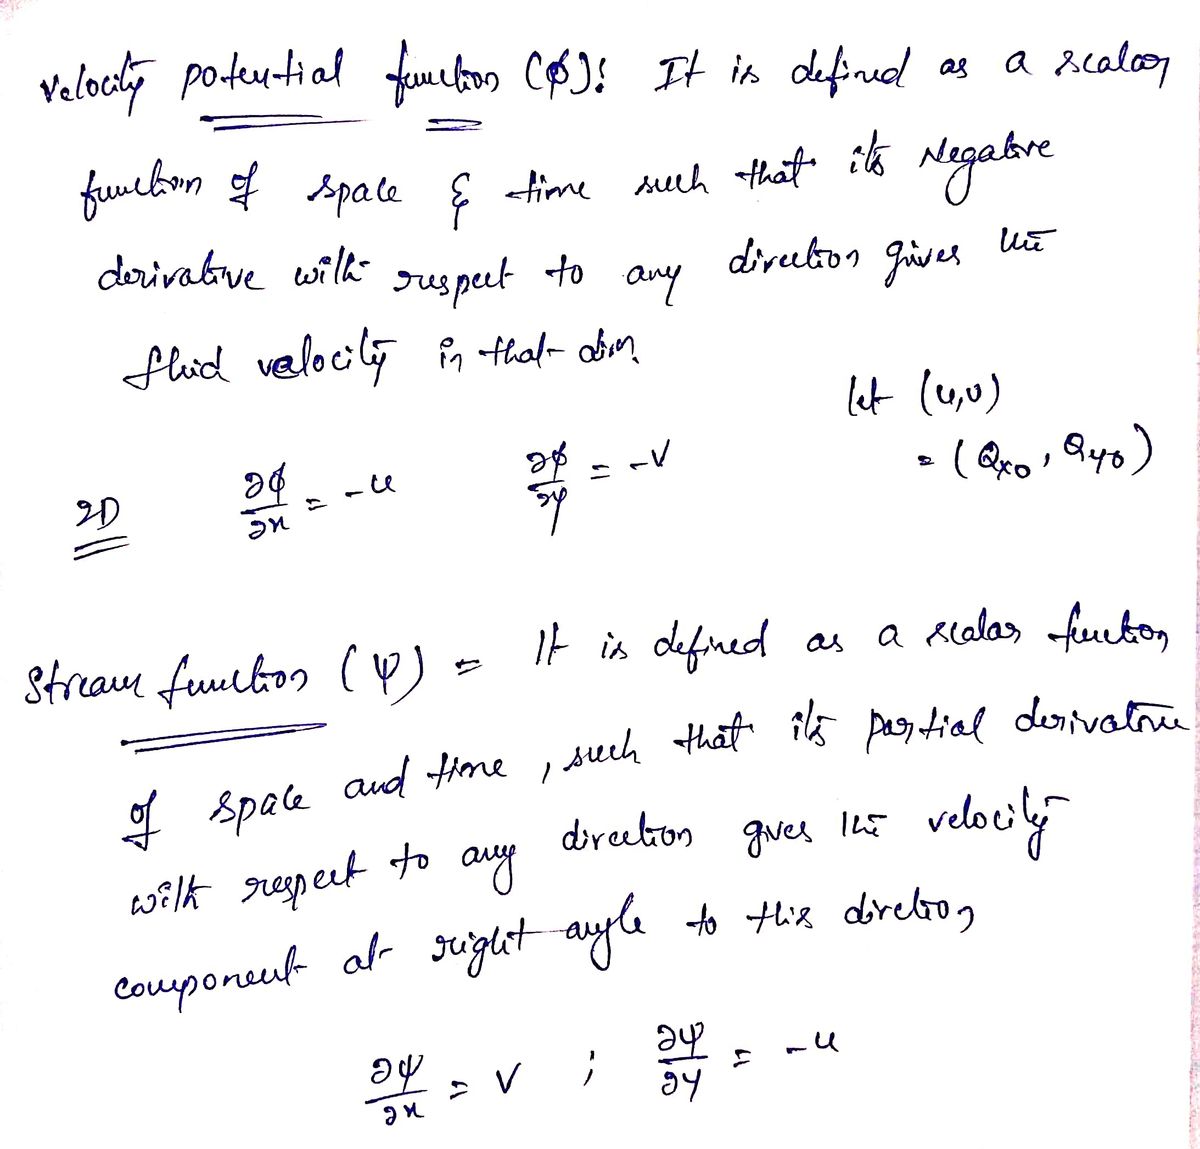 Velocity potential function (ϕ): It is defined as a scalar
function of space & time such that its Negative
derivative with respect to any direction gives the
fluid velocity in that dirn.
let (u,v)
= (Qxo, Qyo)
2D ∂ϕ/∂x = -u ∂ϕ/∂y = -v
Stream function (ψ) = It is defined as a scalar function
of space and time, such that its partial derivative
with respect to any direction gives the velocity
component at right angle to this direction
∂ψ/∂x = v ; ∂ψ/∂y = -u